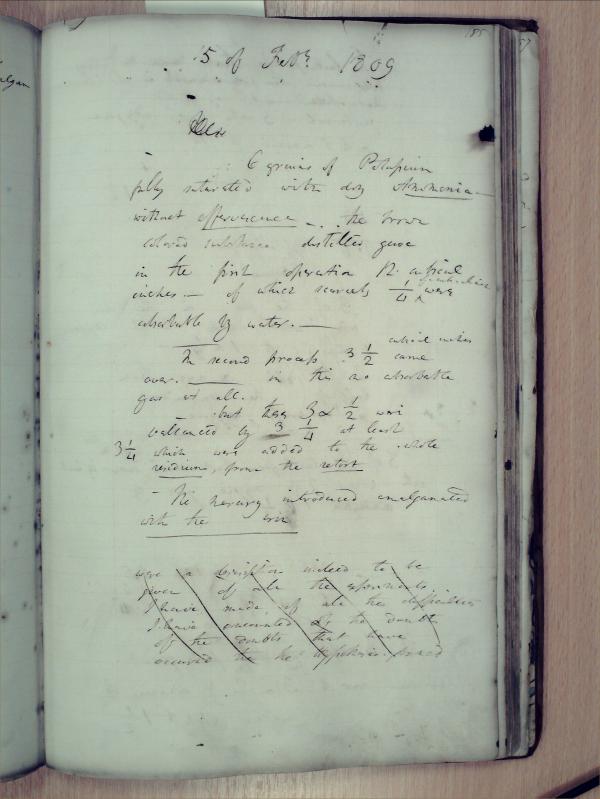 185
15 of Feby 1809
6 grains of Potassium
fully saturated with dry Ammonia
without effervescence — the brown
colored substance distilled gave
in the first operation 12 cubical
inches — of which scarcely 1/4 were
absorbable by water. —
In second process 3 1/2 cubical inches came
over. — in this no absorbable
gas at all.
— but these 3 1/2 were
by 3 1/4 at least
3 1/4 which were added to the whole
residuum, from the retort
The mercury introduced amalgamated
with the
were a description indeed to be
given of all the experiments
I have made, of all the difficulties
I have encountered of the doubts
of the doubts that have
occurred the hypotheses formed